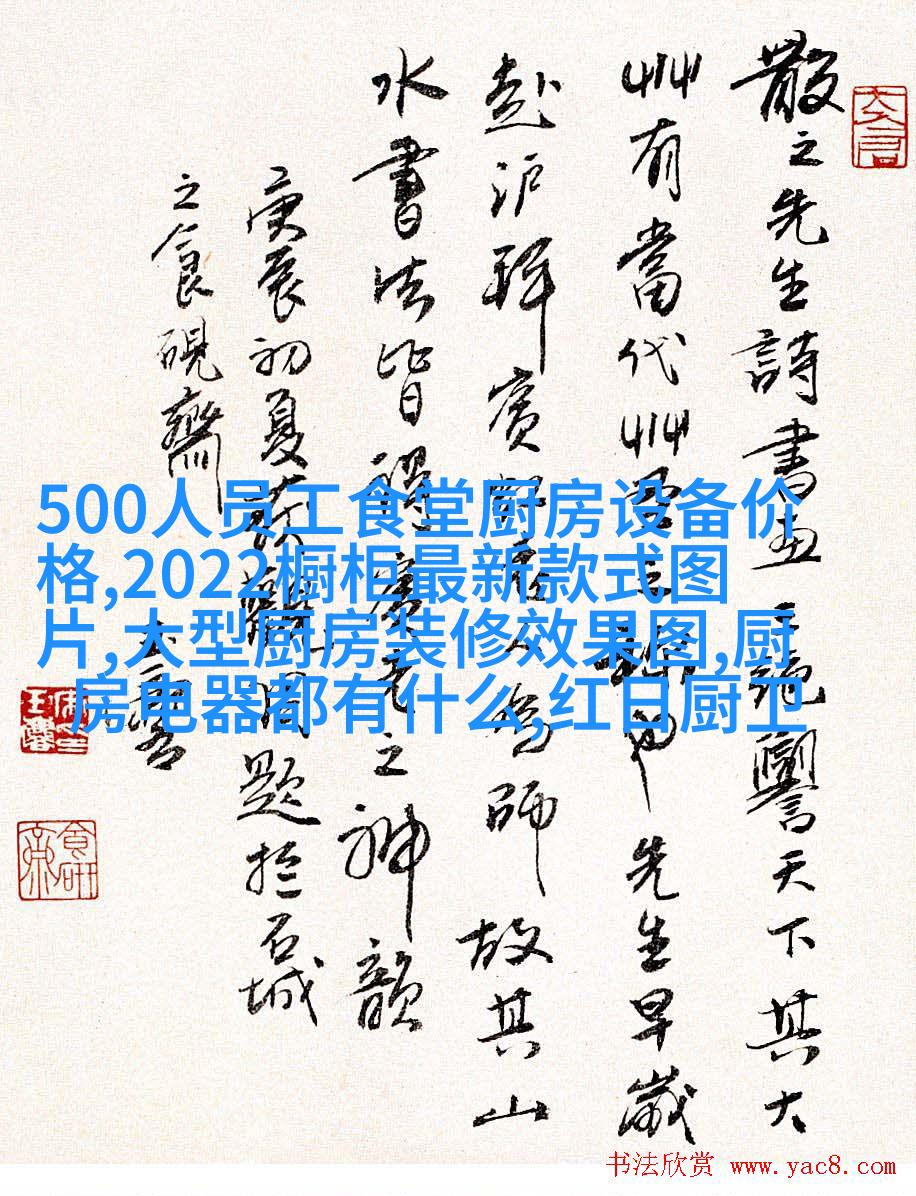 散之先生詩書画三絕譽天下其大
艸有當代艸聖之先生早歲
赴沪拜賓人為師故其山
水書法皆得賓老之神韻
庚辰初夏題於石城
之食硯齋
500人员工食堂厨房设备价
格,2022橱柜最新款式图
片,大型厨房装修效果图,厨
房电器都有什么,红日厨卫
书法欣赏 www.yac8.com